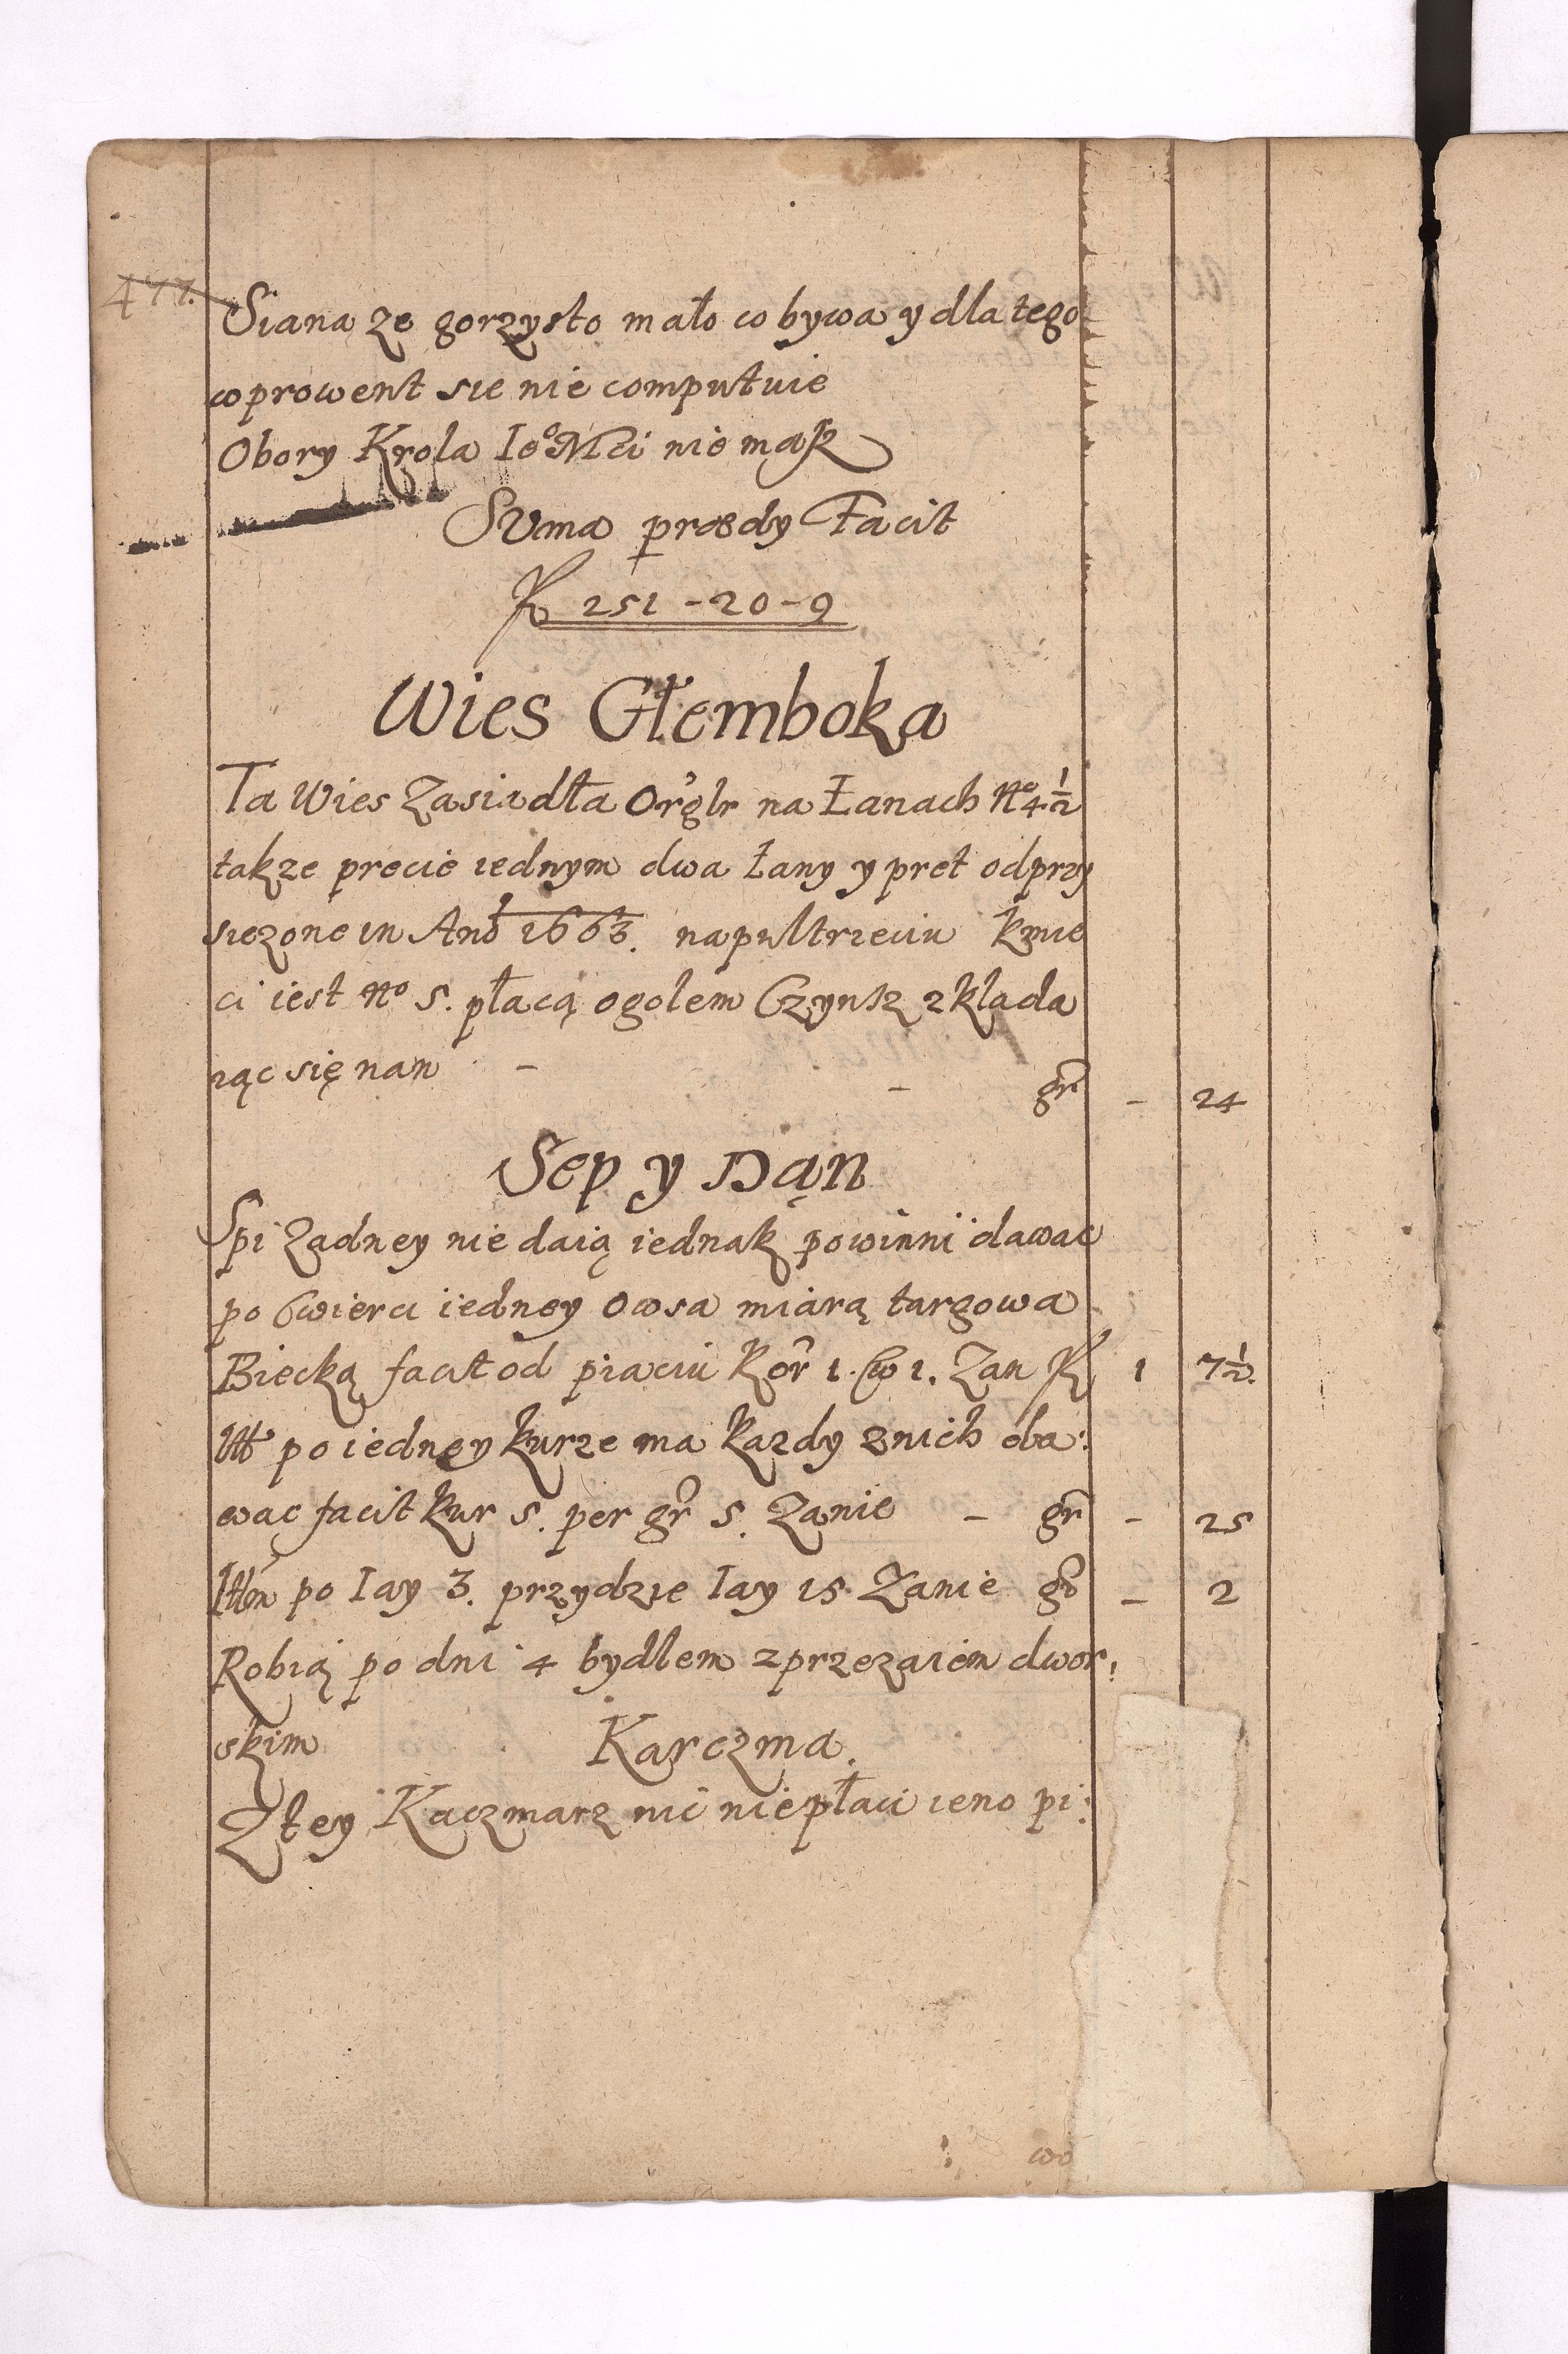 477.
Siana ze gorzysto mało co bywa y dla tego
w prowent sie nie computuie
Obory Krola Ieº Mci nie masz
Suma prædy Facit
251 - 20 - 9
Wies Głemboka
Ta Wies Zasiadła na Łanach Nº 4 1/2
takze precie iednym dwa Łany y pret odprzy
siezone in Anō 1663. napultrzeciu kmie
ci iest Nº 5. płacą ogolem Czynsz zklada
iąc się nan - - gr - 24
Sep y Dąn
Spi Zadney nie daią iednak powinni dawac
po Cwierci iedney Owsa miarą targowa
Biecką facit od piaciu Kor 1. Cw 1. Zan 1 7 1/2.
It po iedney kurze ma kazdy znich oba:
wac facit kur 5. per gr 5. Zanie - gr - 25
Itm po Iay 3. przydzie Iay 15 Zanie gr - 2
Robią po dni 4 bydlem zprzezaiem dwor:
skim Karczma.
Ztey Kaczmarz nic niepłaci ieno pi:
wo